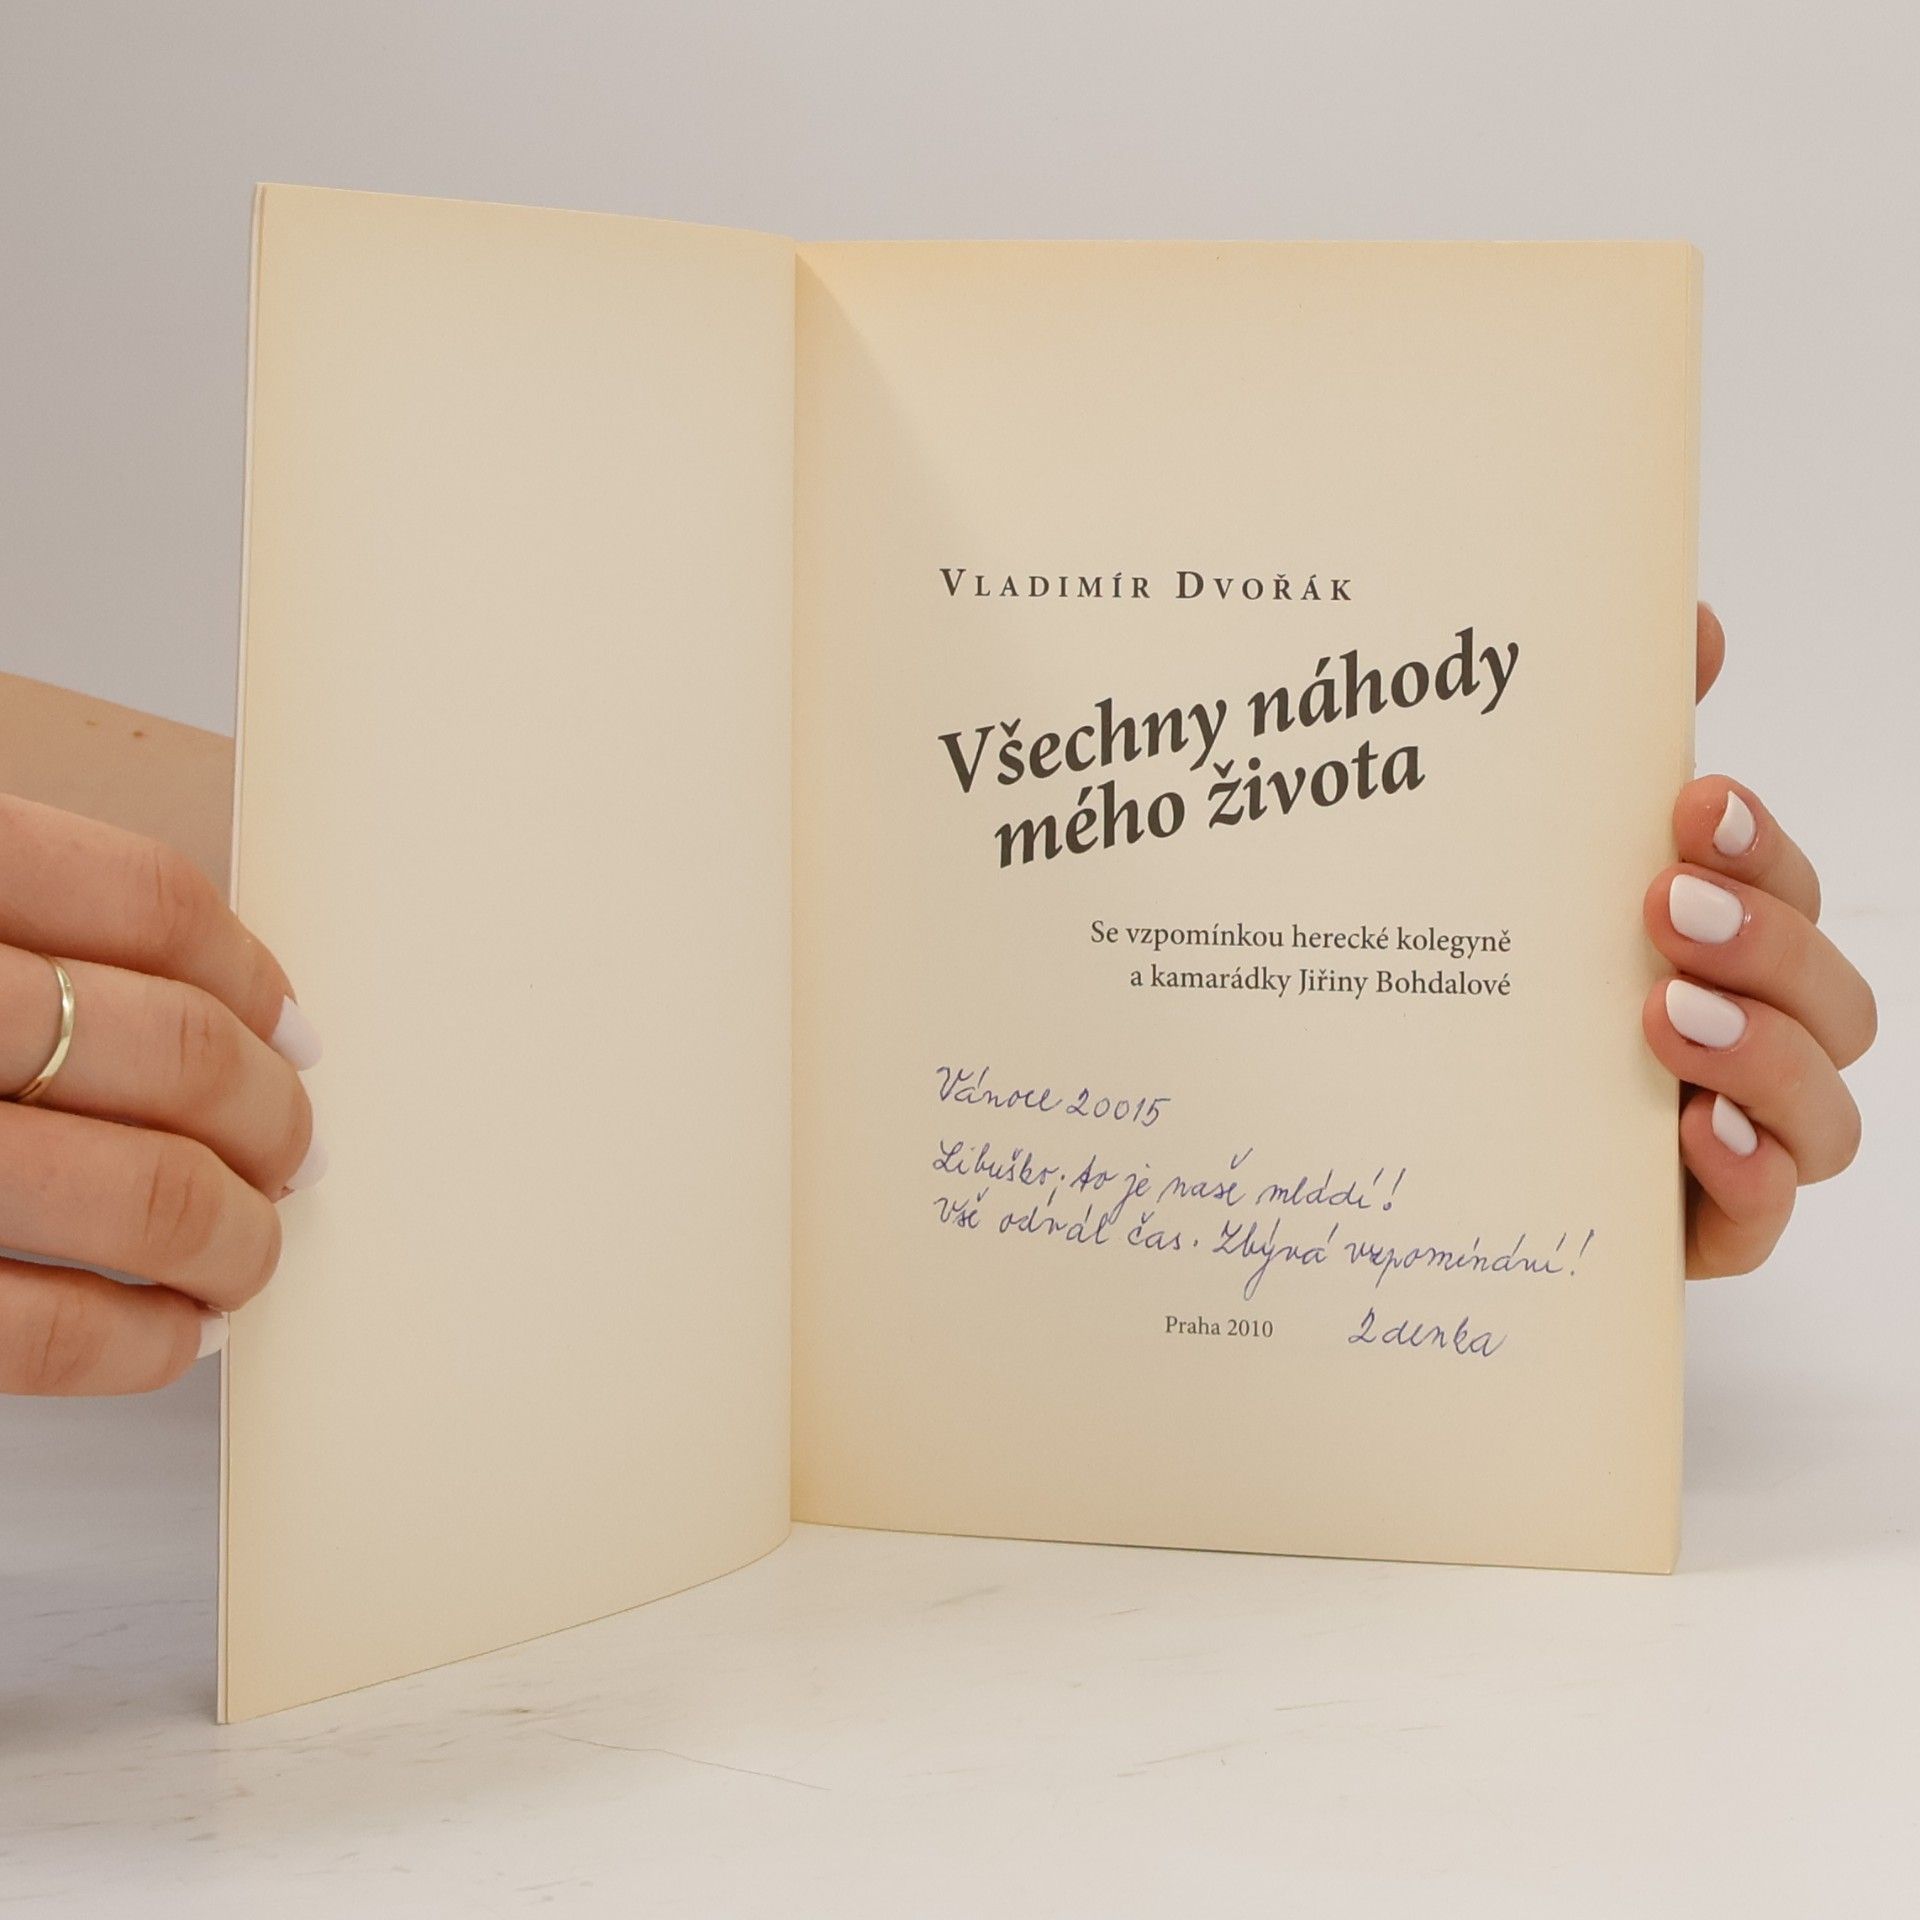 Vladimír Dvořák
Všechny náhody
mého života
Se vzpomínkou herecké kolegyně
a kamarádky Jiřiny Bohdalové
Vánoce 20015
Libuško, to je naše mládí!
Vše odvál čas. Zbývá vzpomínání!
Praha 2010 Zdenka